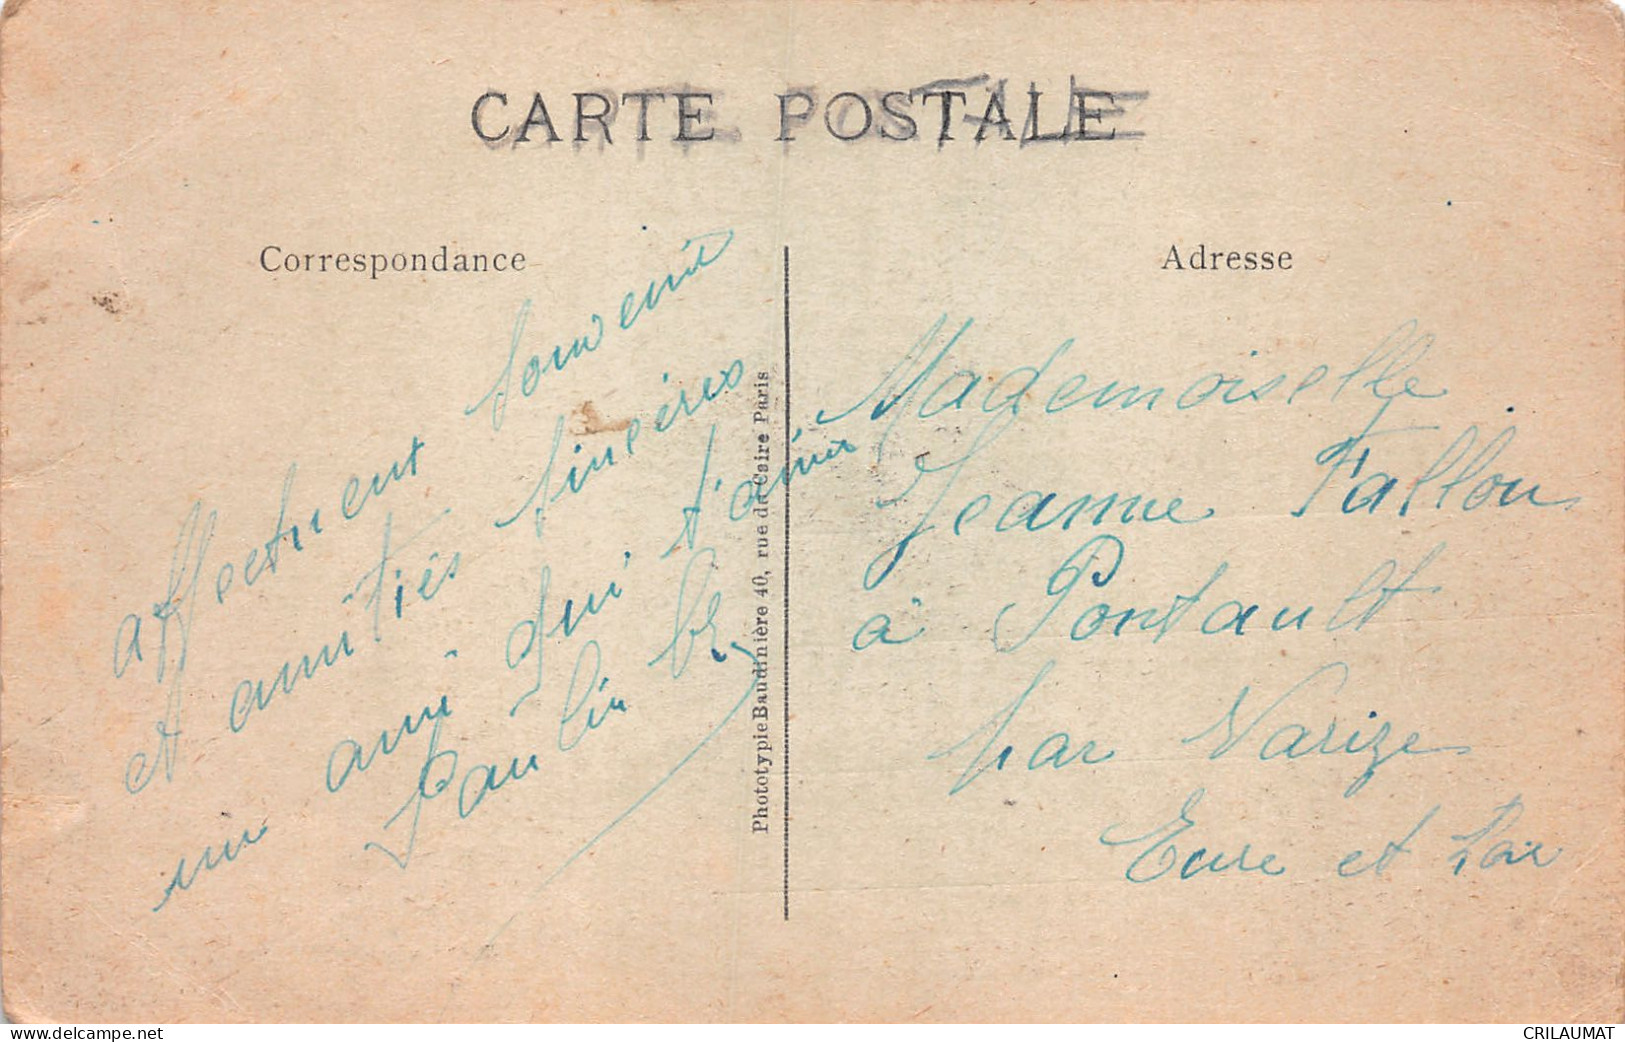 CARTE POSTALE
Correspondance
affectueux souvenir
et amitiés sincères
un ami qui t'aime
Paulin
Phototypie Baudinière 40, rue du Caire Paris
Adresse
Mademoiselle
Jeanne Fallou
à Pontault
par Varize
Eure et Loir
www.delcampe.net
CRILAUMAT